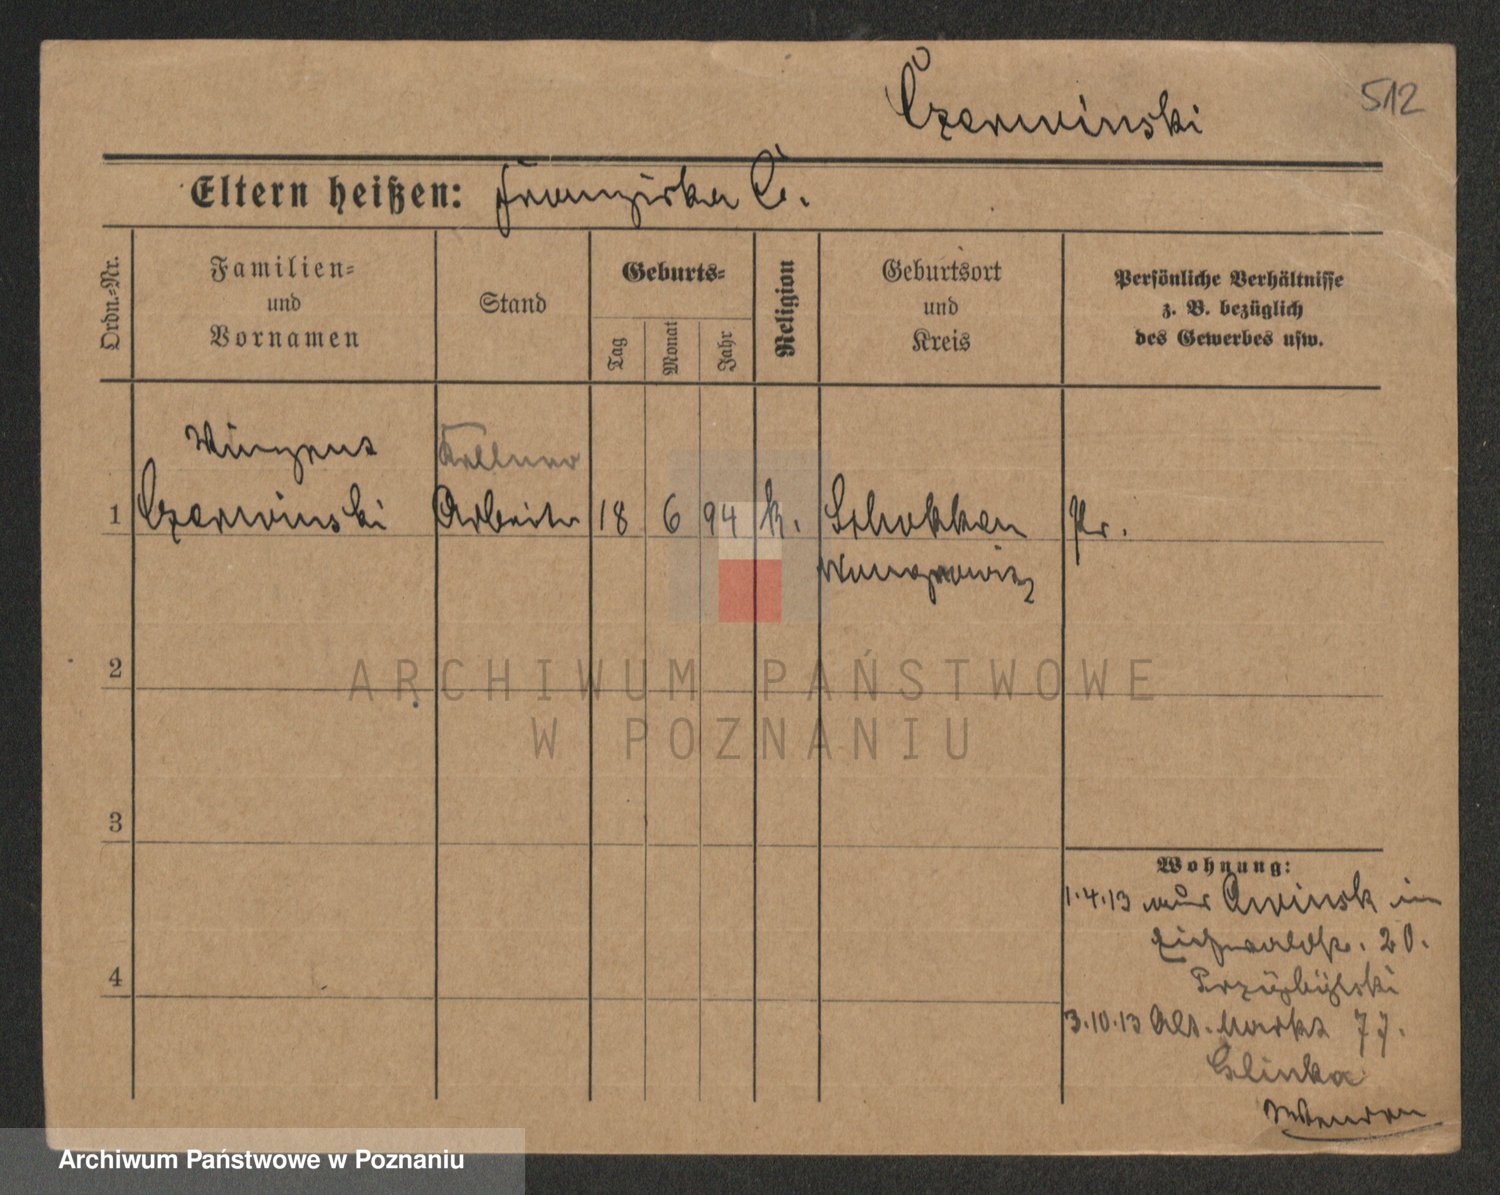 Czerwinski
512
Eltern heißen: Franziska C.
Ordn.-Nr.
Familien-
und
Vornamen
Stand
Geburts-
Tag
Monat
Jahr
Religion
Geburtsort
und
Kreis
Persönliche Verhältnisse
z. B. bezüglich
des Gewerbes usw.
Kellner
1 Czerwinski Arbeiter 18 6 94 k. Schokken Pr.
Wongrowitz
2
ARCHIWUM PAŃSTWOWE
W POZNANIU
3
Wohnung:
1.4.13 aus
Eichwaldstr. 20.
Przybylski
4
3.10.13 Alt. Markt 77.
Glinka
Archiwum Państwowe w Poznaniu